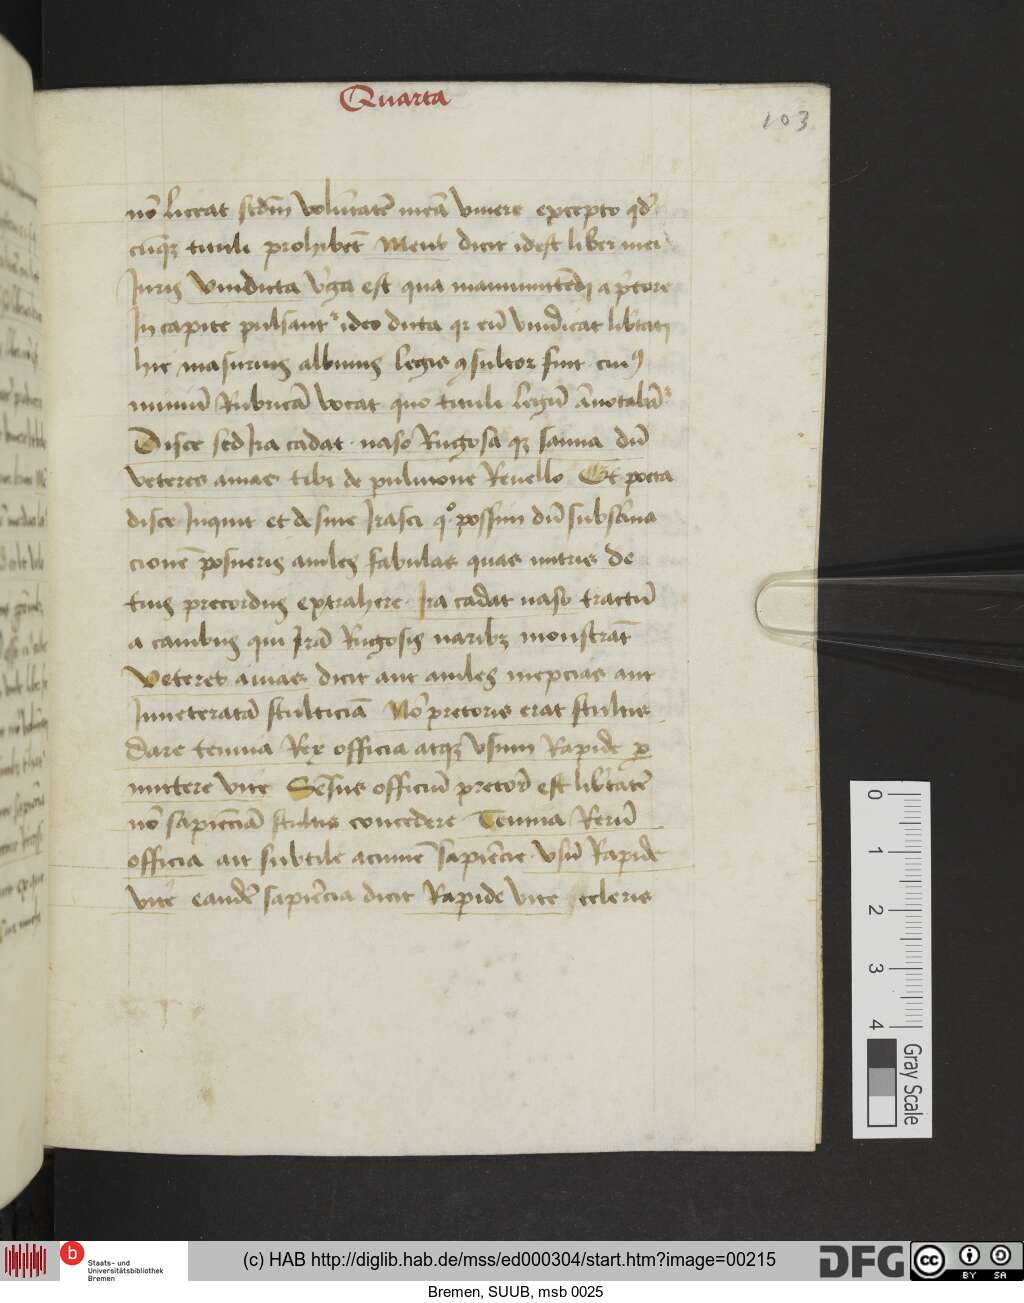 Quarta
103
nō liceat scdm̄ volūtatē meā vivere excepto qd
cūqꝫ tituli prohibet̄ Meus dicit idest liber mei
Iuris Vindicta v̄ga est qua manumittēdi a p̄tore
In capite pulsant᷑ ideo dicta qꝛ eū vindicat lib̄tati
hic masurius albinus legis ꝯsultor fuit cuiꝰ
miniū Rubricā vocat quo tituli legū ānotabāt᷑
Disce sed Ira cadat naso Rugosa qꝫ sanna dū
veteres avias tibi de pulmone Revello Et poeta
disce Inquit et desine Irasci qͦ possim dū subsāna
cionē posueris aniles fabulas quas nutris de
tuis precordiis extrahere Ira cadat naso tractū
a canibus qui Irā Rugosis naribꝫ monstrāt
Veteres avias dicit aut aniles inepcias aut
Inveteratā stulticiā Nō pretoris erat stultis
dare tenuia Rex officia atqꝫ usum Rapide ꝑ
mittere vite Sēsus officiū pretor̄ est lib̄tatē
nō sapiēciā stultis concedere Tenuia Rerū
officia ait subtile acumē sapiēcie usū Rapide
vite eandē sapiēcia dicit Rapide vite celeris
0
1
2
3
4
Gray Scale
Staats- und
Universitätsbibliothek
Bremen
(c) HAB http://diglib.hab.de/mss/ed000304/start.htm?image=00215
DFG
cc BY SA
Bremen, SUUB, msb 0025